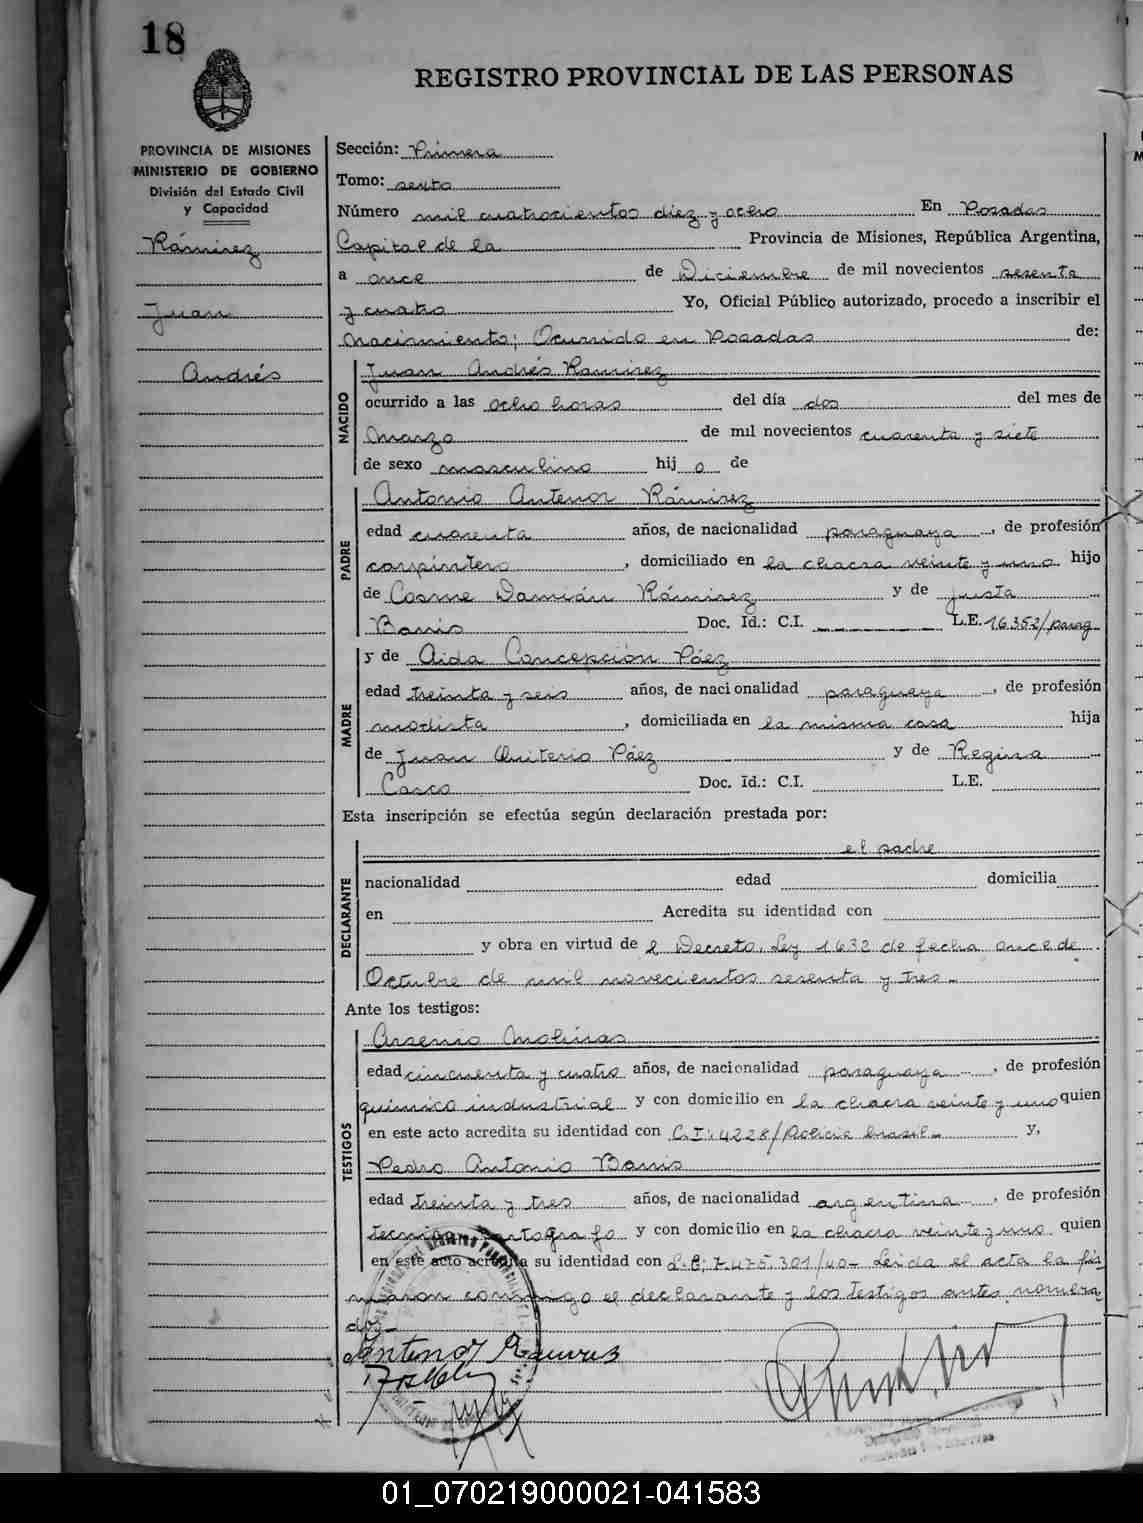 18
REGISTRO PROVINCIAL DE LAS PERSONAS
PROVINCIA DE MISIONES
MINISTERIO DE GOBIERNO
División del Estado Civil
y Capacidad
Rámirez
Juan
Andrés
Sección: Primera
Tomo: sexto
Número mil cuatrocientos diez y ocho En Posadas
Capital de la Provincia de Misiones, República Argentina,
a once de Diciembre de mil novecientos sesenta
y cuatro Yo, Oficial Público autorizado, procedo a inscribir el
nacimiento; Ocurrido en Posadas de:
NACIDO
Juan Andrés Ramirez
ocurrido a las ocho horas del día dos del mes de
Marzo de mil novecientos cuarenta y siete
de sexo masculino hij o de
PADRE
Antonio Antenor Rámirez
edad cuarenta años, de nacionalidad paraguaya, de profesión
carpintero, domiciliado en la chacra veinte y uno hijo
de Cosme Damián Rámirez y de Justa
Barris Doc. Id.: C.I. L.E. 16352/parag
MADRE
y de Aida Concepción Páez
edad treinta y seis años, de nacionalidad paraguaya, de profesión
modista, domiciliada en la misma casa hija
de Juan Quiterio Páez y de Regina
Casco Doc. Id.: C.I. L.E.
Esta inscripción se efectúa según declaración prestada por:
DECLARANTE
el padre
nacionalidad edad domicilia
en Acredita su identidad con
y obra en virtud de l Decreto. Ley 1632 de fecha once de
Octubre de mil novecientos sesenta y tres.-
Ante los testigos:
TESTIGOS
Arsenio Molinas
edad cincuenta y cuatro años, de nacionalidad paraguaya, de profesión
quimico industrial y con domicilio en la chacra veinte y uno quien
en este acto acredita su identidad con C.I: 4228/Policia brasil.- y,
Pedro Antonio Barris
edad treinta y tres años, de nacionalidad argentina, de profesión
tecnico y con domicilio en la chacra veinte y uno quien
en este acto acredita su identidad con L.E: 7.475.301/40- Leida el acta la fir
maron conmigo el declarante y los testigos antes nomera
dos-
Antenor Ramirez
01_070219000021-041583